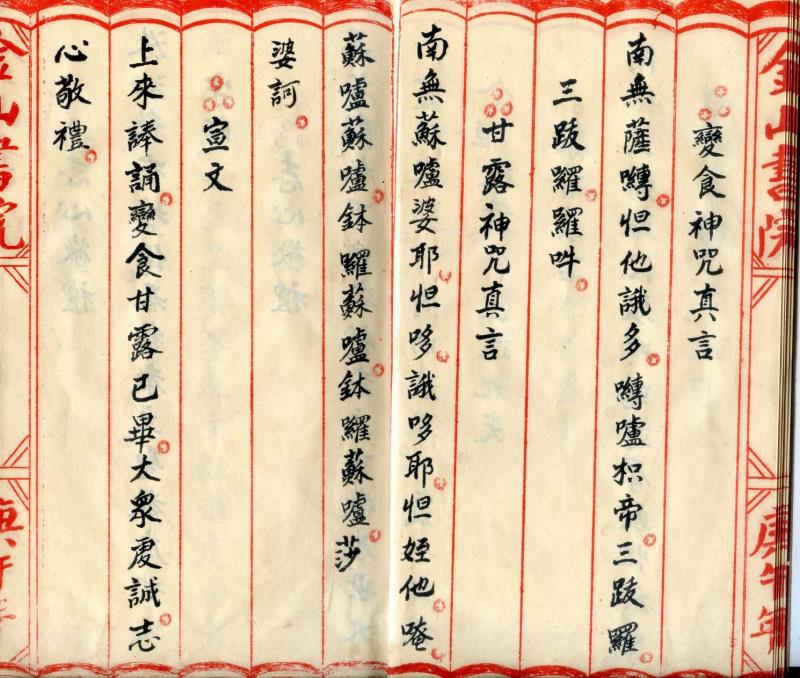 金山書院
庚午年
變食神咒真言
南無薩嚩怛他誐多嚩嚧枳帝三跋羅
三跋羅羅吽
甘露神咒真言
南無蘇嚧婆耶怛哆誐哆耶怛姪他唵
蘇嚧蘇嚧鉢羅蘇嚧鉢羅蘇嚧莎
婆訶
宣文
上來諱誦變食甘露已畢大衆虔誠志
心敬禮
金山書院
庚午年